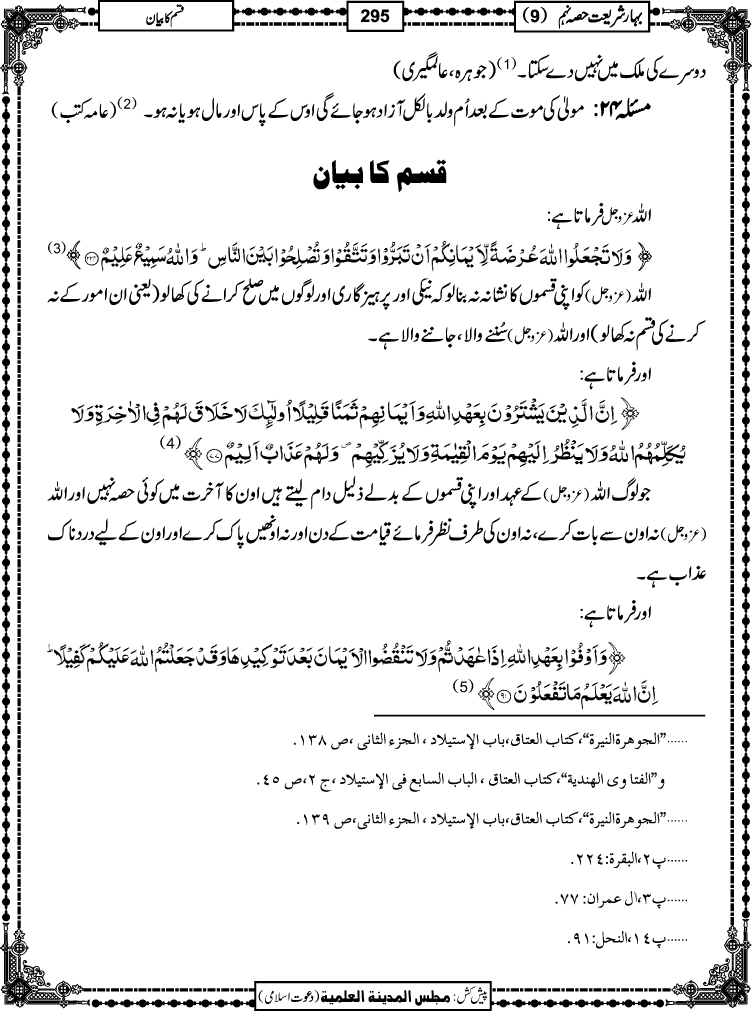 بہارِ شریعت حصہ نہم (9)
295
قسم کا بیان
دوسرے کی ملک میں نہیں دے سکتا۔(1) (جوہرہ، عالمگیری)
مسئلہ ۲۴: مولیٰ کی موت کے بعد اُم ولد بالکل آزاد ہو جائے گی اوس کے پاس اور مال ہو یا نہ ہو۔ (2) (عامہ کتب)
قسم کا بیان
اللہ عزوجل فرماتا ہے:
﴿ وَلَا تَجْعَلُوا اللّٰهَ عُرْضَةً لِّاَیْمَانِكُمْ اَنْ تَبَرُّوْا وَتَتَّقُوْا وَتُصْلِحُوْا بَیْنَ النَّاسِ ؕ وَاللّٰهُ سَمِیْعٌ عَلِیْمٌ ﴿۲۲۴﴾ ﴾ (3)
اللہ (عزوجل) کو اپنی قسموں کا نشانہ نہ بنا لو کہ نیکی اور پرہیزگاری اور لوگوں میں صلح کرانے کی کھالو (یعنی ان امور کے نہ
کرنے کی قسم نہ کھالو) اور اللہ (عزوجل) سُننے والا، جاننے والا ہے۔
اور فرماتا ہے:
﴿ اِنَّ الَّذِیْنَ یَشْتَرُوْنَ بِعَهْدِ اللّٰهِ وَاَیْمَانِهِمْ ثَمَنًا قَلِیْلًا اُولٰٓىِٕكَ لَا خَلَاقَ لَهُمْ فِی الْاٰخِرَةِ وَلَا
یُكَلِّمُهُمُ اللّٰهُ وَلَا یَنْظُرُ اِلَیْهِمْ یَوْمَ الْقِیٰمَةِ وَلَا یُزَكِّیْهِمْ ۪ وَلَهُمْ عَذَابٌ اَلِیْمٌ ﴿۷۷﴾ ﴾ (4)
جو لوگ اللہ (عزوجل) کے عہد اور اپنی قسموں کے بدلے ذلیل دام لیتے ہیں اون کا آخرت میں کوئی حصہ نہیں اور اللہ
(عزوجل) نہ اون سے بات کرے، نہ اون کی طرف نظر فرمائے قیامت کے دن اور نہ اونھیں پاک کرے اور اون کے لیے دردناک
عذاب ہے۔
اور فرماتا ہے:
﴿ وَاَوْفُوْا بِعَهْدِ اللّٰهِ اِذَا عٰهَدْتُّمْ وَلَا تَنْقُضُوا الْاَیْمَانَ بَعْدَ تَوْكِیْدِهَا وَقَدْ جَعَلْتُمُ اللّٰهَ عَلَیْكُمْ كَفِیْلًا ؕ
اِنَّ اللّٰهَ یَعْلَمُ مَا تَفْعَلُوْنَ ﴿۹۱﴾ ﴾ (5)
......”الجوهرة النيرة“، كتاب العتاق، باب الإستيلاد، الجزء الثانی، ص ۱۳۸.
و”الفتاوى الهندية“، كتاب العتاق، الباب السابع فی الإستيلاد، ج ۲، ص ٤٥.
......”الجوهرة النيرة“، كتاب العتاق، باب الإستيلاد، الجزء الثانی، ص ۱۳۹.
......پ۲، البقرة: ۲۲٤.
......پ۳، اٰل عمران: ۷۷.
......پ۱٤، النحل: ۹۱.
پیش کش: مجلس المدینة العلمیة (دعوت اسلامی)